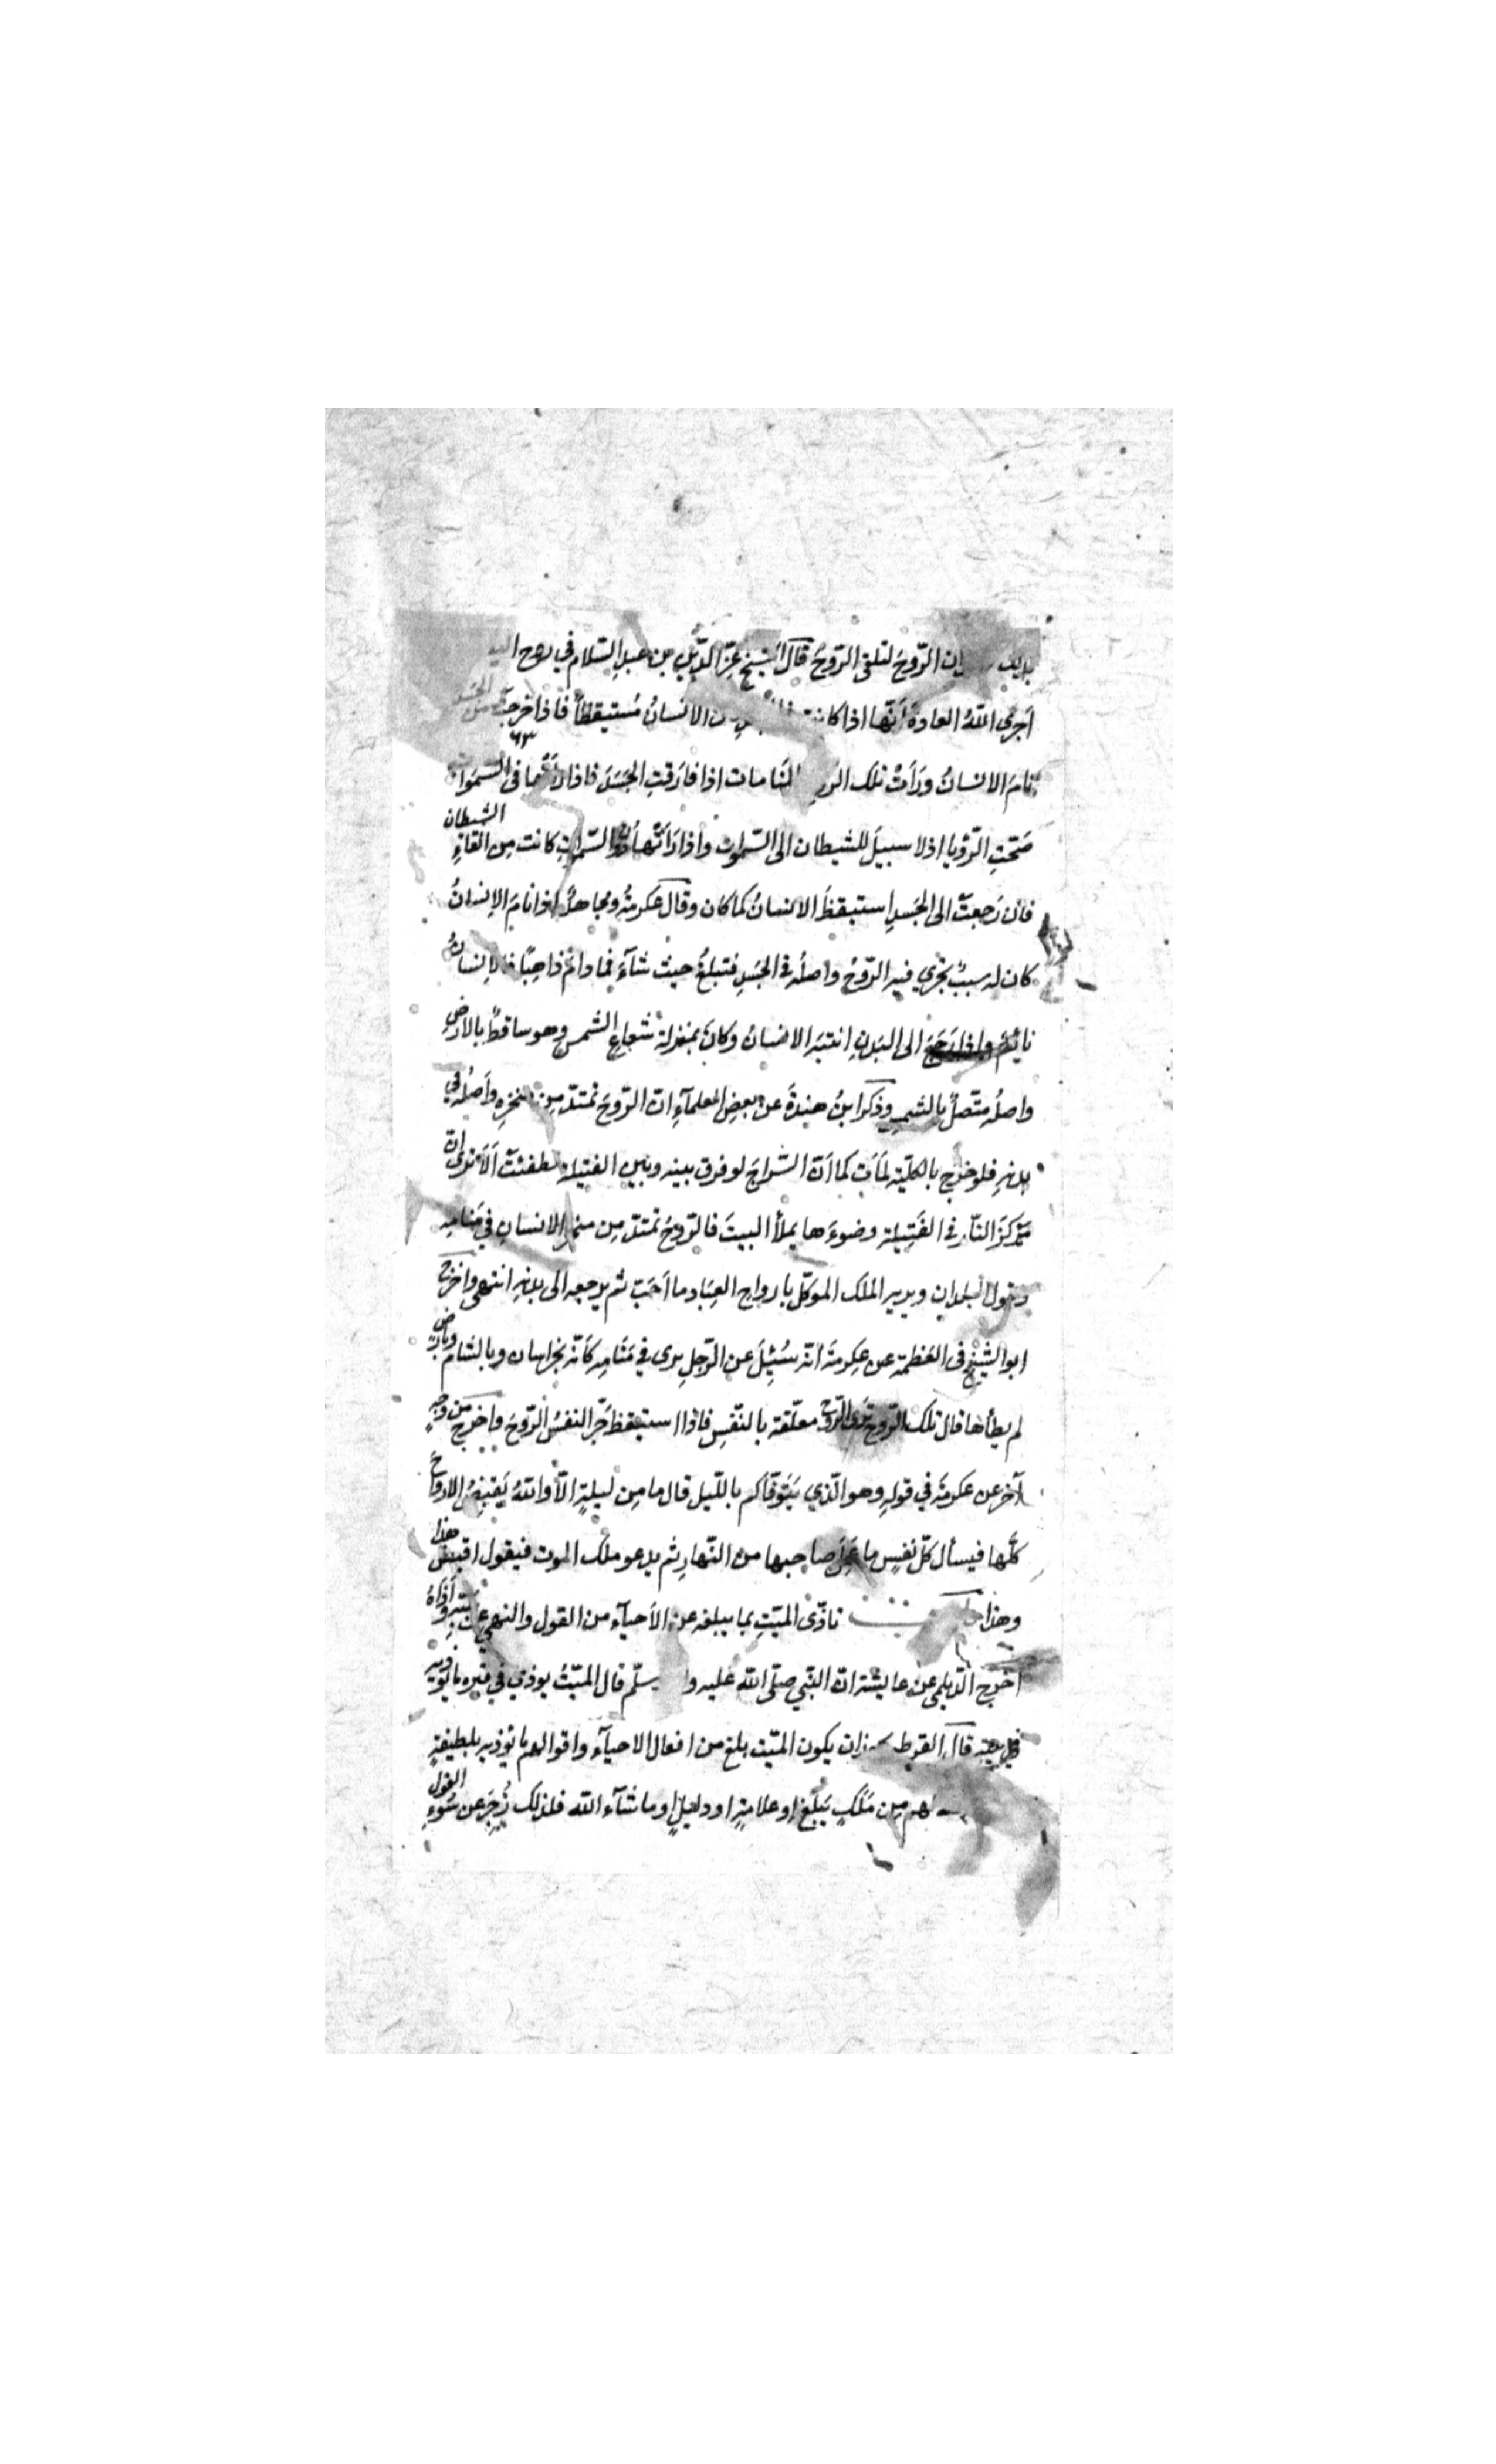 ان الرّوحَ لتلقى الرّوحُ قالَ الشيخ عزّ الدّين بن عبدِ السّلام في روح
أجرى اللّهُ العادةَ أنّها اذا كانت الانسانُ مُستيقظاً فاذا خرجتْ من الجسد
نامَ الانسانُ ورَأتْ تلك المنامات اذا فارَقتِ الجَسَدَ فاذا رأتْها فى السمٰوات
صَحّتِ الرّؤيا اذ لا سبيلَ للشيطان الى السّموات واذا رَأتْها دُونَ السّمواتِ كانت مِن القاءِ الشيطان
فان رَجعتْ الى الجَسدِ استيقظَ الانسانُ كما كان وقال عكرمةُ ومجاهدٌ اذا نامَ الانسانُ
كان له سببٌ يجري فيه الرّوحُ واصلُه في الجَسَدِ فتبلغُ حيث شآءَ فما دام ذاهبًا فالانسانُ
نائمٌ واذا رَجعَ الى البَدنِ انتبَه الانسانُ وكانَ بمنزلة شعاعِ الشمس وهو ساقطٌ بالارضِ
واصلُه متّصلٌ بالشمسِ وذكر ابنُ مندةَ عن بعضِ العلمآءِ انّ الرّوحَ تمتدّ مِن منخرِه وأصلُه في
بدنهِ فلو خرج بالكلّية لمَات كما أنّ السّراجَ لو فرق بينه وبين الفتيلة لطفئتْ ألا ترى انّ
مركزَ النّار في الفَتِيلة وضوءَها يملأ البيتَ فالرّوحُ تمتدّ مِن منخر الانسانِ في مَنامِه
البلدان ويريه الملك الموكّل بارواح العِبَاد ما أحَبّ ثم يرجعه الى بدنه انتهى واخرج
ابو الشيخ فى العَظمة عن عِكرمةَ انّه سُئِلَ عن الرّجلِ يرى في مَنَامِه كأنّه بخراسان وبالشام وبارض
لم يطأها قال تلك الرّوح ترى الرّوح معلّقة بالنّفسِ فاذا استيقظ جَرّ النفسُ الرّوحَ واخرج من وجهٍ
آخر عن عكرمةَ في قولهِ وهو الّذي يَتَوفّاكم باللّيل قال ما مِن ليلةٍ الّا واللّهُ يَقبِضُ الارواحَ
كلَّها فيسأل كلّ نفسٍ ما عَمِلَ صاحبها من النّهارِ ثم يدعو ملك الموت فيقول اقبِض هذا
وهذا تأذّى الميّتِ بما يبلغه عن الأحيآء من القول والنهي عن سَبّه وأذاهُ
أخرج الدّيلمى عن عايشة انّ النّبي صلّى اللّه عليه وسلّم قال الميّتُ يوذي في قبره ما يوذيه
في بيته قال القرطبي ان يكون الميّت بلغ من افعال الاحيآء واقوالهم ما يؤذيه بلطيفةٍ
لهم مِن مَلَكٍ يَبلّغ او علامةٍ او دليلٍ او ما شآء اللّه فلذلك زُجِرَ عن سُوءِ القول